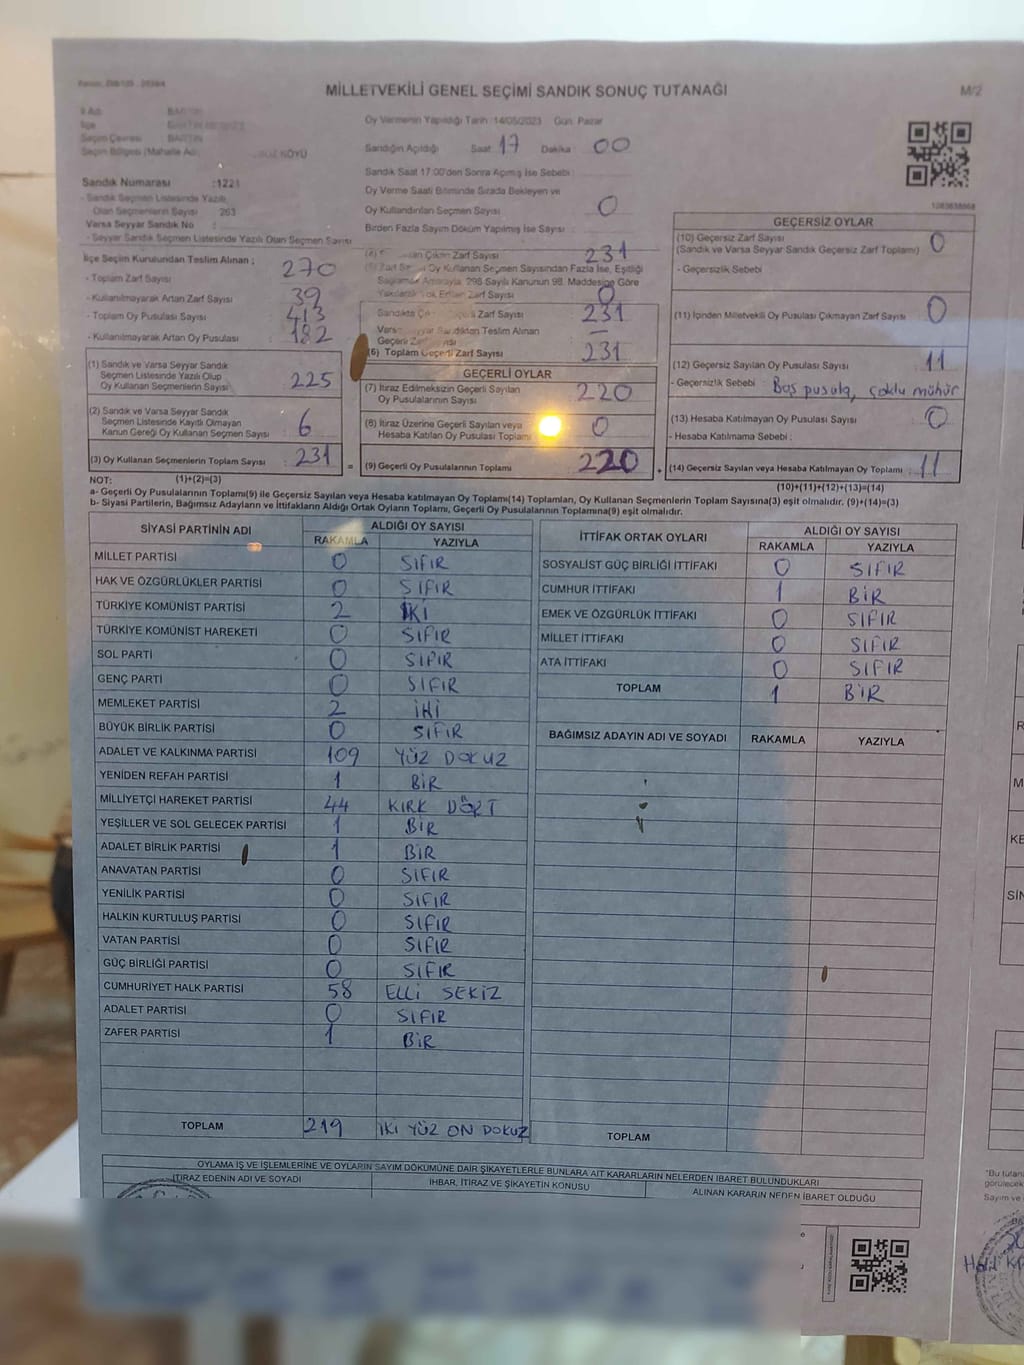 MİLLETVEKİLİ GENEL SEÇİMİ SANDIK SONUÇ TUTANAĞI
M/2
İl Adı : BARTIN
İlçe
Seçim Çevresi : BARTIN
Seçim Bölgesi (Mahalle Adı KÖYÜ
Oy Vermenin Yapıldığı Tarih :14/05/2023 Gün: Pazar
Sandığın Açıldığı Saat 17 Dakika : 00
Sandık Saat 17:00'den Sonra Açılmış İse Sebebi :
Oy Verme Saati Bitiminde Sırada Bekleyen ve
Oy Kullandırılan Seçmen Sayısı : 0
Birden Fazla Sayım Döküm Yapılmış İse Sayısı :
Sandık Numarası :1221
- Sandık Seçmen Listesinde Yazılı
Olan Seçmenlerin Sayısı 263
Varsa Seyyar Sandık No :
- Seyyar Sandık Seçmen Listesinde Yazılı Olan Seçmen Sayısı
İlçe Seçim Kurulundan Teslim Alınan :
- Toplam Zarf Sayısı 270
- Kullanılmayarak Artan Zarf Sayısı 39
- Toplam Oy Pusulası Sayısı 413
- Kullanılmayarak Artan Oy Pusulası 182
Çıkan Zarf Sayısı 231
Oy Kullanan Seçmen Sayısından Fazla İse, Eşitliği
Sağlamak Amacıyla, 298 Sayılı Kanunun 98. Maddesine Göre
Yakılarak Yok Edilen Zarf Sayısı 0
Sandıkta Zarf Sayısı 231
Teslim Alınan
Geçerli –
(6) Toplam Geçerli Zarf Sayısı 231
(1) Sandık ve Varsa Seyyar Sandık
Seçmen Listesinde Yazılı Olup
Oy Kullanan Seçmenlerin Sayısı : 225
(2) Sandık ve Varsa Seyyar Sandık
Seçmen Listesinde Kayıtlı Olmayan
Kanun Gereği Oy Kullanan Seçmen Sayısı : 6
(3) Oy Kullanan Seçmenlerin Toplam Sayısı : 231
=
GEÇERLİ OYLAR
(7) İtiraz Edilmeksizin Geçerli Sayılan
Oy Pusulalarının Sayısı 220
(8) İtiraz Üzerine Geçerli Sayılan veya
Hesaba Katılan Oy Pusulası Toplamı 0
(9) Geçerli Oy Pusulalarının Toplamı 220
+
GEÇERSİZ OYLAR
(10) Geçersiz Zarf Sayısı : 0
(Sandık ve Varsa Seyyar Sandık Geçersiz Zarf Toplamı)
- Geçersizlik Sebebi :
(11) İçinden Milletvekili Oy Pusulası Çıkmayan Zarf Sayısı : 0
(12) Geçersiz Sayılan Oy Pusulası Sayısı : 11
- Geçersizlik Sebebi : Boş pusula, çoklu mühür
(13) Hesaba Katılmayan Oy Pusulası Sayısı : 0
- Hesaba Katılmama Sebebi :
(14) Geçersiz Sayılan veya Hesaba Katılmayan Oy Toplamı : 11
NOT: (1)+(2)=(3)
(10)+(11)+(12)+(13)=(14)
a- Geçerli Oy Pusulalarının Toplamı(9) ile Geçersiz Sayılan veya Hesaba katılmayan Oy Toplamı(14) Toplamları, Oy Kullanan Seçmenlerin Toplam Sayısına(3) eşit olmalıdır. (9)+(14)=(3)
b- Siyasi Partilerin, Bağımsız Adayların ve İttifakların Aldığı Ortak Oyların Toplamı, Geçerli Oy Pusulalarının Toplamına(9) eşit olmalıdır.
SİYASİ PARTİNİN ADI ALDIĞI OY SAYISI
RAKAMLA YAZIYLA
MİLLET PARTİSİ 0 SIFIR
HAK VE ÖZGÜRLÜKLER PARTİSİ 0 SIFIR
TÜRKİYE KOMÜNİST PARTİSİ 2 İKİ
TÜRKİYE KOMÜNİST HAREKETİ 0 SIFIR
SOL PARTİ 0 SIFIR
GENÇ PARTİ 0 SIFIR
MEMLEKET PARTİSİ 2 İKİ
BÜYÜK BİRLİK PARTİSİ 0 SIFIR
ADALET VE KALKINMA PARTİSİ 109 YÜZ DOKUZ
YENİDEN REFAH PARTİSİ 1 BİR
MİLLİYETÇİ HAREKET PARTİSİ 44 KIRK DÖRT
YEŞİLLER VE SOL GELECEK PARTİSİ 1 BİR
ADALET BİRLİK PARTİSİ 1 BİR
ANAVATAN PARTİSİ 0 SIFIR
YENİLİK PARTİSİ 0 SIFIR
HALKIN KURTULUŞ PARTİSİ 0 SIFIR
VATAN PARTİSİ 0 SIFIR
GÜÇ BİRLİĞİ PARTİSİ 0 SIFIR
CUMHURİYET HALK PARTİSİ 58 ELLİ SEKİZ
ADALET PARTİSİ 0 SIFIR
ZAFER PARTİSİ 1 BİR
TOPLAM 219 İKİ YÜZ ON DOKUZ
İTTİFAK ORTAK OYLARI ALDIĞI OY SAYISI
RAKAMLA YAZIYLA
SOSYALİST GÜÇ BİRLİĞİ İTTİFAKI 0 SIFIR
CUMHUR İTTİFAKI 1 BİR
EMEK VE ÖZGÜRLÜK İTTİFAKI 0 SIFIR
MİLLET İTTİFAKI 0 SIFIR
ATA İTTİFAKI 0 SIFIR
TOPLAM 1 BİR
BAĞIMSIZ ADAYIN ADI VE SOYADI RAKAMLA YAZIYLA
TOPLAM
OYLAMA İŞ VE İŞLEMLERİNE VE OYLARIN SAYIM DÖKÜMÜNE DAİR ŞİKAYETLERLE BUNLARA AİT KARARLARIN NELERDEN İBARET BULUNDUKLARI
İTİRAZ EDENİN ADI VE SOYADI İHBAR, İTİRAZ VE ŞİKAYETİN KONUSU ALINAN KARARIN NEDEN İBARET OLDUĞU